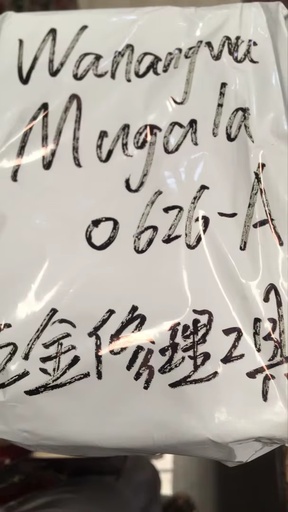 Wanangwa
Mugala
0626-A
五金修理工具